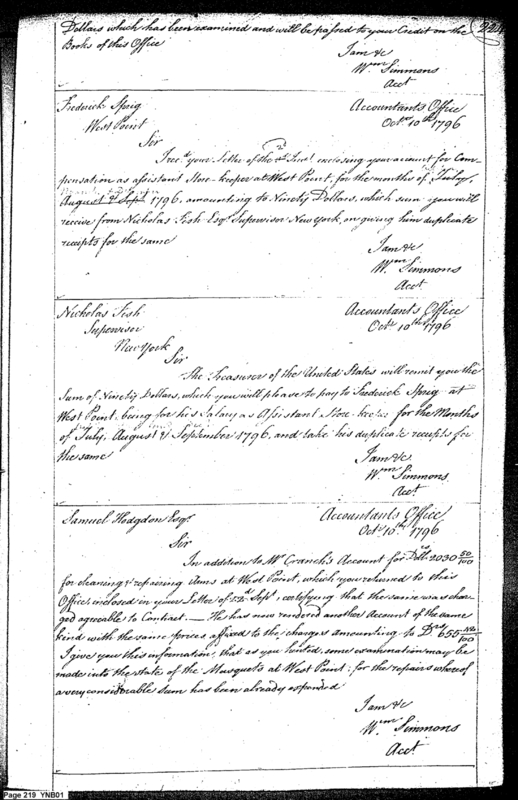 Dollars which has been examined and will be passed to your Credit on the
Books of this Office
I am &c
Wm Simmons
Acct
Frederick Sprig
West Point
Accountants Office
Octr 10th 1796
Sir
I recd your Letter of the Inst enclosing your account for Com-
pensation as assistant Store-keeper at West Point, for the months of July,
August & Sept 1796, amounting to Ninety Dollars, which sum you will
receive from Nicholas Fish Esqr Supervisor New York, on giving him duplicate
receipts for the same
I am &c
Wm Simmons
Acct
Nicholas Fish
Supervisor
New York
Accountants Office
Octr 10th 1796
Sir
The Treasurer of the United States will remit you the
Sum of Ninety Dollars, which you will please to pay to Frederick Sprig at
West Point, being for his Salary as Assistant Store-keeper for the Months
of July, August & September 1796, and take his duplicate receipts for
the same
I am &c
Wm Simmons
Acct
Samuel Hodgdon Esqr
Accountants Office
Octr 10th 1796
Sir
In addition to Mr Cranch's Account for Dolls 2030 50/100
for cleaning & repairing Arms at West Point, which you returned to this
Office, inclosed in your Letter of Sept, certifying that the same was char-
ged agreeable to Contract. — He has now rendered another Account of the same
kind with the same prices affixed to the charges amounting to Drs 655
I give you this information, that as you hinted, some examination may be
made into the state of the Musquets at West Point, for the repairs whereof
a very considerable sum has been already expended
I am &c
Wm Simmons
Acct
Page 219 YNB01